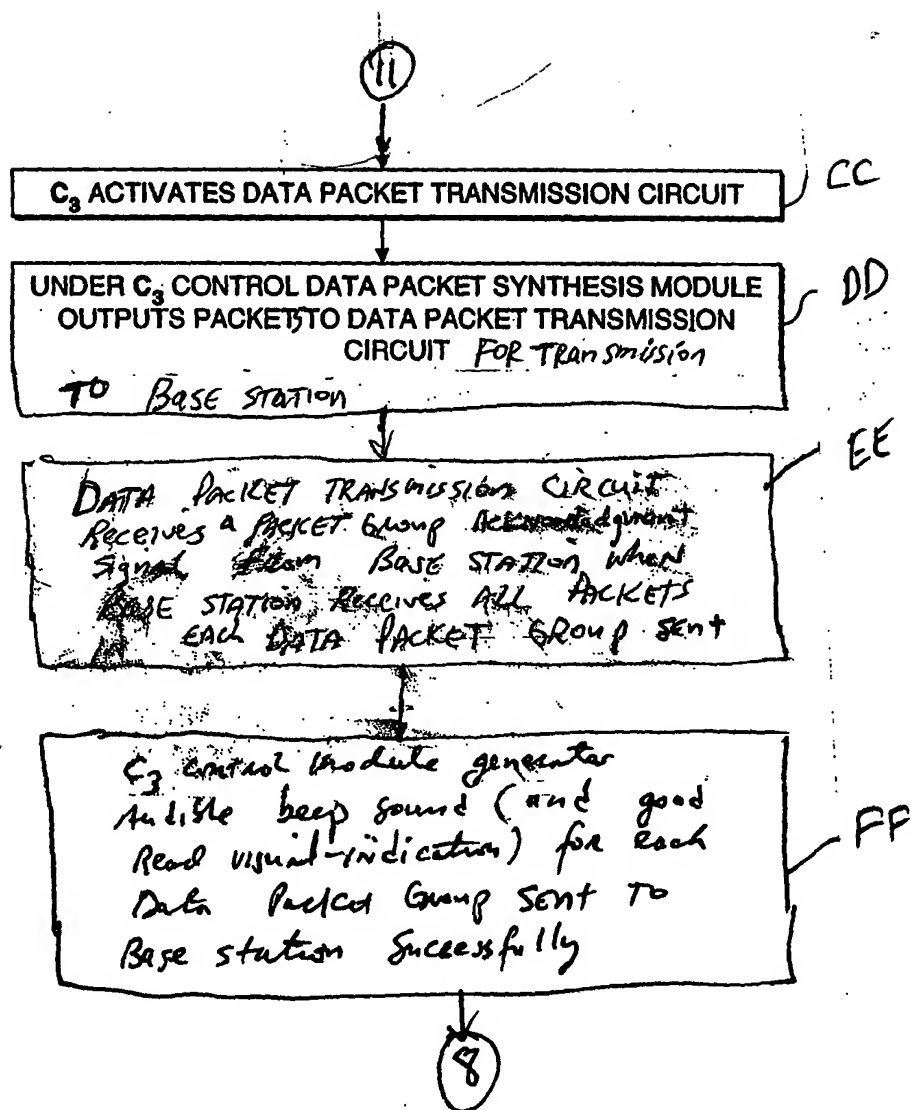 11
C₃ ACTIVATES DATA PACKET TRANSMISSION CIRCUIT
CC
UNDER C₃ CONTROL DATA PACKET SYNTHESIS MODULE
DD
OUTPUTS PACKETS TO DATA PACKET TRANSMISSION
CIRCUIT FOR TRANSMISSION
TO BASE STATION
EE
DATA PACKET TRANSMISSION CIRCUIT
Receives a PACKET Group Acknowledgment
Signal From BASE STATION when
BASE STATION Receives ALL PACKETS
EACH DATA PACKET GROUP Sent
C₃ control module generates
Audible beep sound (and good
Read visual-indication) for each
FF
Data Packet Group SENT TO
Base station Successfully
8